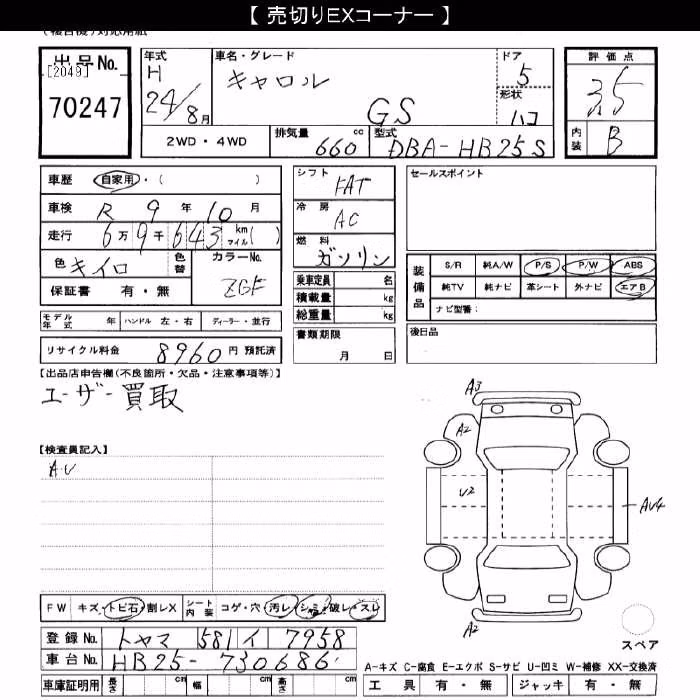 【 売切りEXコーナー 】
出品No. [2049] 70247
年式 H 24/8月
車名・グレード キャロル GS
ドア 5
形状 ハコ
評価点 3.5
内装 B
2WD・4WD
排気量 660 cc
型式 DBA-HB25S
車歴 自家用・( )
車検 R 9 年 10 月
走行 6万9千643 km マイル( )
色 キイロ 色替 カラーNo. ZGF
保証書 有・無
シフト FAT
冷房 AC
燃料 ガソリン
乗車定員 名
積載量 kg
総重量 kg
書類期限 月 日
セールスポイント
装備品 S/R 純A/W P/S P/W ABS
純TV 純ナビ 革シート 外ナビ エアB
ナビ型番:
後日品
モデル年式 年 ハンドル 左・右 ディーラー・並行
リサイクル料金 8960 円 預託済
【出品店申告欄(不良箇所・欠品・注意事項等)】
ユーザー買取
【検査員記入】
A.U
A3
A2
U2
AU4
A2
スペア
FW キズ・トビ石・割レX シート内装 コゲ・穴・汚レ・シミ・破レ・スレ
登録No. トヤマ 581 イ 7958
車台No. HB25-730686
車庫証明用 長さ cm 幅 cm 高さ cm
A-キズ C-腐食 E-エクボ S-サビ U-凹ミ W-補修 XX-交換済
工具 有・無 ジャッキ 有・無